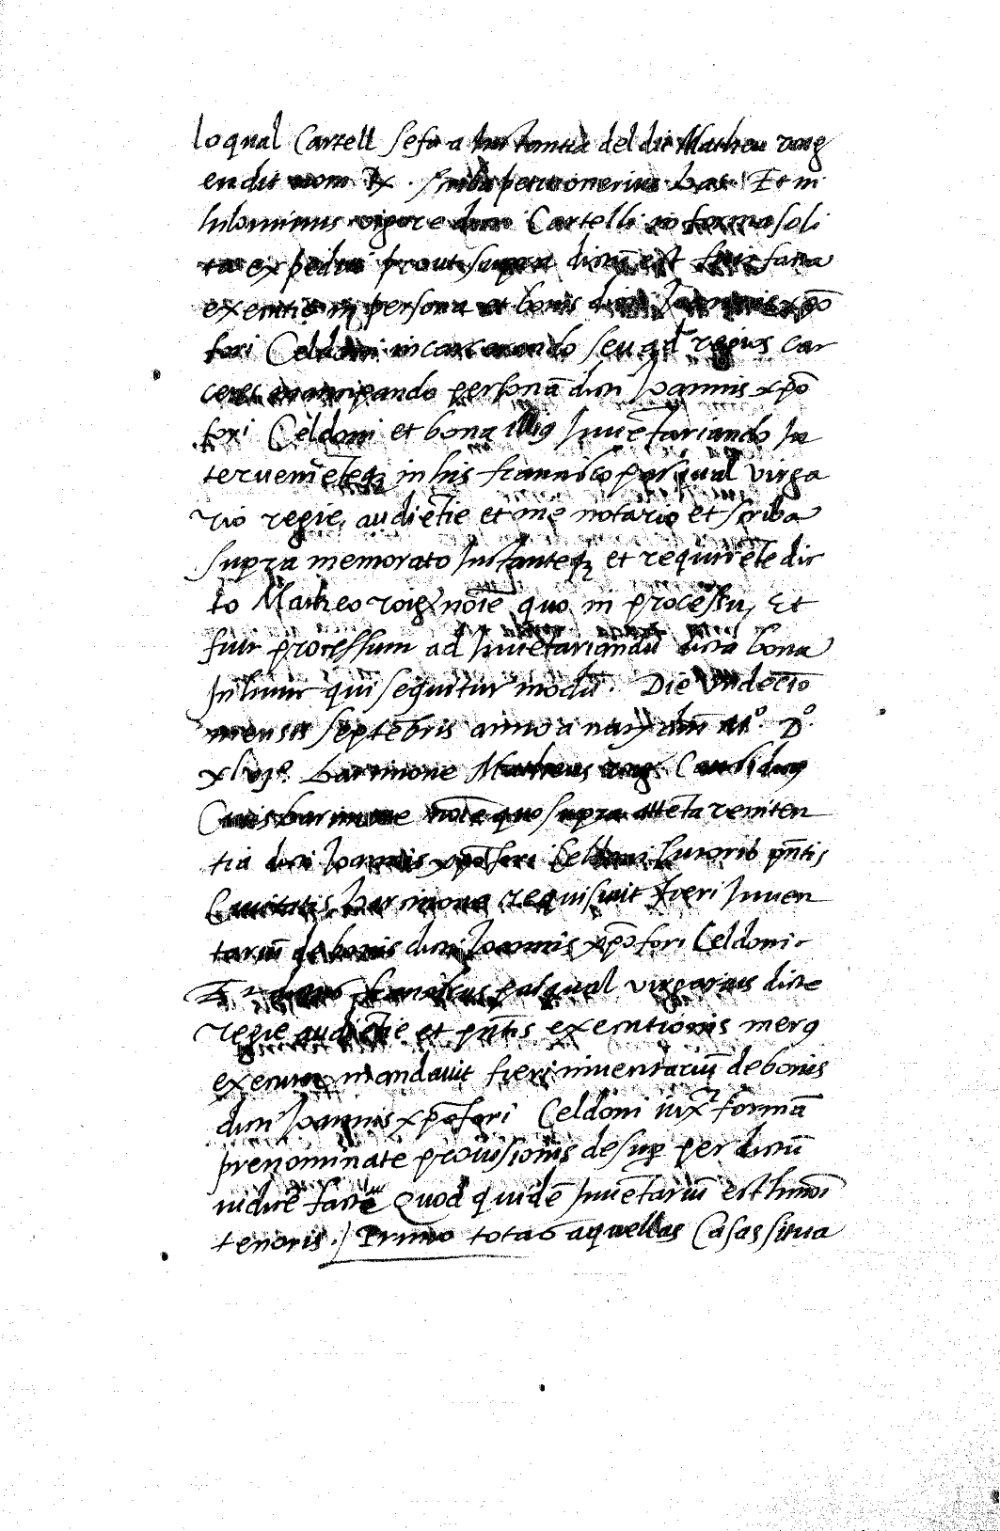 lo qual Cartell se fu a Instantia del dit Matheu roig
en dit nom
hilominus vigore dicti Cartelli in forma soli
ta expediti prout supra dictū est fuit facta
exemtio in persona et bonis dicti Joannis xpō
fori Celdoni incarcerando seu ad regios car
ceres mancipando personā dicti Joannis xpō
fori Celdoni et bona illius Inuētariando In
terueniēteq₃ in his francisco pasqual virga
rio regie audiētie et me notario et scriba
supra memorato Instanteq₃ et requirēte dic
to Matheo roig noīe quo in processu, Et
fuit processum ad Inuētariandū dicta bona
In hunc qui sequitur modū. Die Vndecīo
mensis septēbris anno a naty dnī M° D°
xlvij° barcinone Matheus roig
Ciuis barcinone noīe quo supra attēta reniten
tia dicti Joannis xpōfori Celdoni sutoris pn̄tis
Ciuitatis barcinone requisiuit fieri Inuen
tariū de bonis dicti Joannis xpōfori Celdoni
Et franciscus pasqual virgarius dicte
regie audiētie et pn̄tis executionis merq
mandauit fieri inuentariū de bonis
dicti Joannis xpōfori Celdoni iuxᵃ formā
prenominate prouisionis desup per dictū
iudicē facte Quod quidē Inuētariū est hmōi
tenoris./ Primo totas aquellas Casas situa